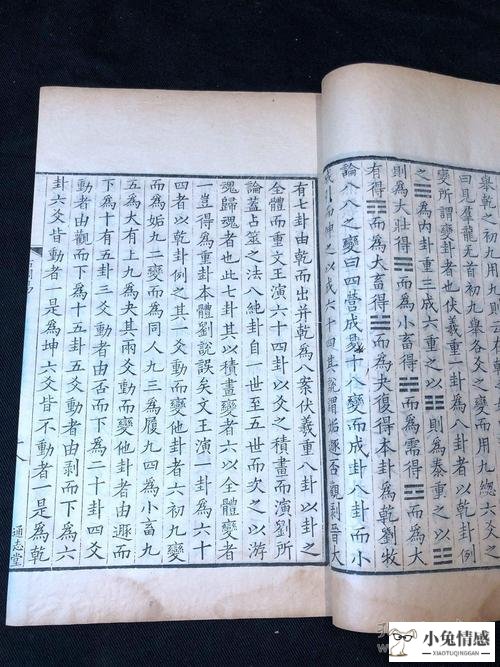 舉乾之初九用九
曰見羣龍无首初九舉各爻之變
變所謂變卦者也伏羲重卦為八卦者
之☰為內卦重三成六重之以☷則為泰重之以
則為大壯得☴而為小畜得☵而為需得
有得☶而為大畜得☱而為夬復得本卦為乾劉牧
論八八之變曰四營成易十八變而成卦八卦而小
成引而伸之以成六十四其說謂姤遯否觀剝晉大
有七卦由乾而出并乾為八案伏羲重八卦以卦之
全體而重文王演六十四卦以爻之積畫而演劉所
論蓋占筮之法八純卦自一世至五世而次之以游
魂歸魂者也此七卦其以積畫變者六以全體變者
一豈得為重卦本體劉說誤矣文王演一卦為六十
四者以乾卦例之其一爻動而變他卦者六初九變
而為姤九二變而為同人九三為履九四為小畜九
五為大有上九為夬其兩爻動而變他卦者由遯而
下為十有五卦三爻動者由否而下為二十卦四爻
動者由觀而下為十五卦五爻動者由剝而下為六
卦六爻皆動者一是為坤六爻皆不動者一是為乾
通志堂
小兔情感
XIAOTUQINGGAN